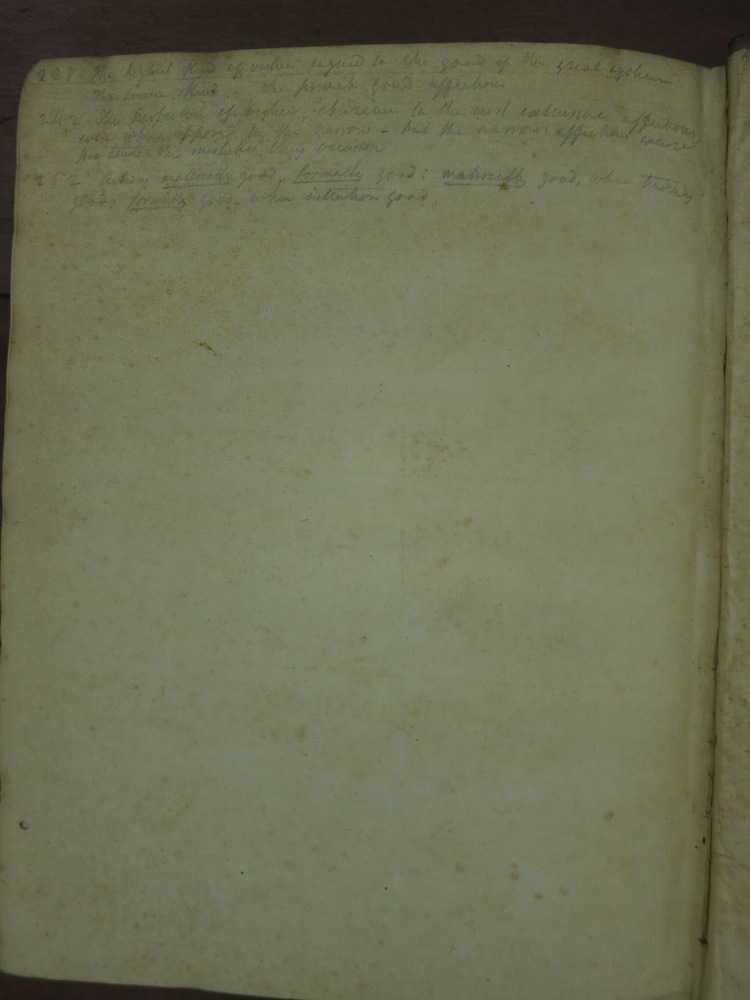 228 The highest kind of virtue regard to the good of the great system
The lower kind – the private good affections
242 The perfection of virtue, obedience to the most extensive affections
even when opposed by the narrow – but the narrow affections excuse
the mistakes they occasion
252 Action materially good, formally good: materially good, when
good; formally good when intention good